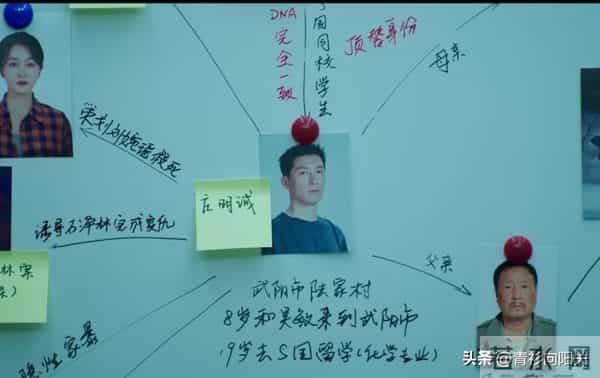 DNA完全一致
同校学生
顶替身份
母亲
庄明诚
诱导石泽林完成复仇
父亲
武阳市陆家村
8岁和吴敏来到武阳市
19岁去S国留学(化学专业)
林案
隐性家暴
头条 @青衫向阳关